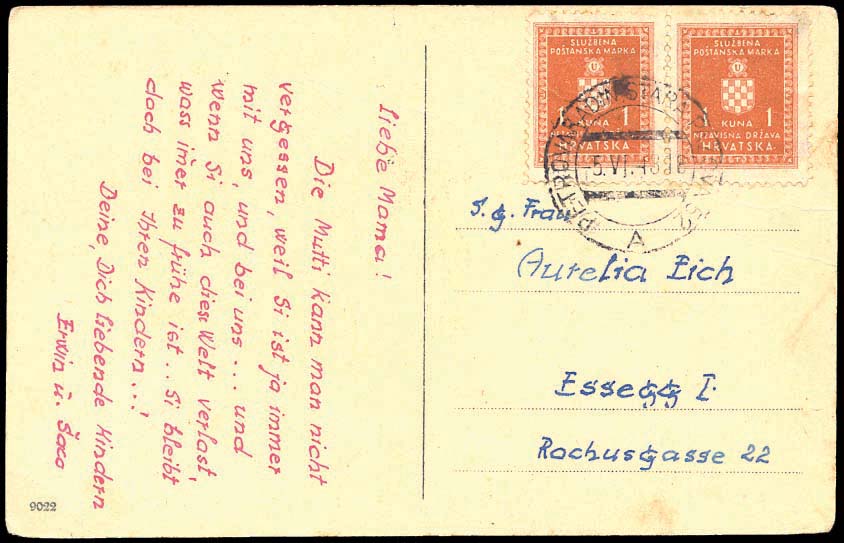 Liebe Mama!
Die Mutti kann man nicht
vergessen, weil Si ist ja immer
mit uns, und bei uns... und
wenn Si auch diese Welt verlast,
wass imer zu frühe ist.. Si bleibt
doch bei Ihren Kindern...!
Deine, Dich liebende Kindern
Erwin u. Saco
9022
SLUŽBENA
POŠTANSKA MARKA
U
1
KUNA
NEZAVISNA DRŽAVA
HRVATSKA
SLUŽBENA
POŠTANSKA MARKA
U
1
KUNA 1
NEZAVISNA DRŽAVA
HRVATSKA
A
S.g. Frau
Aurelia Eich
Essegg I.
Rochusgasse 22